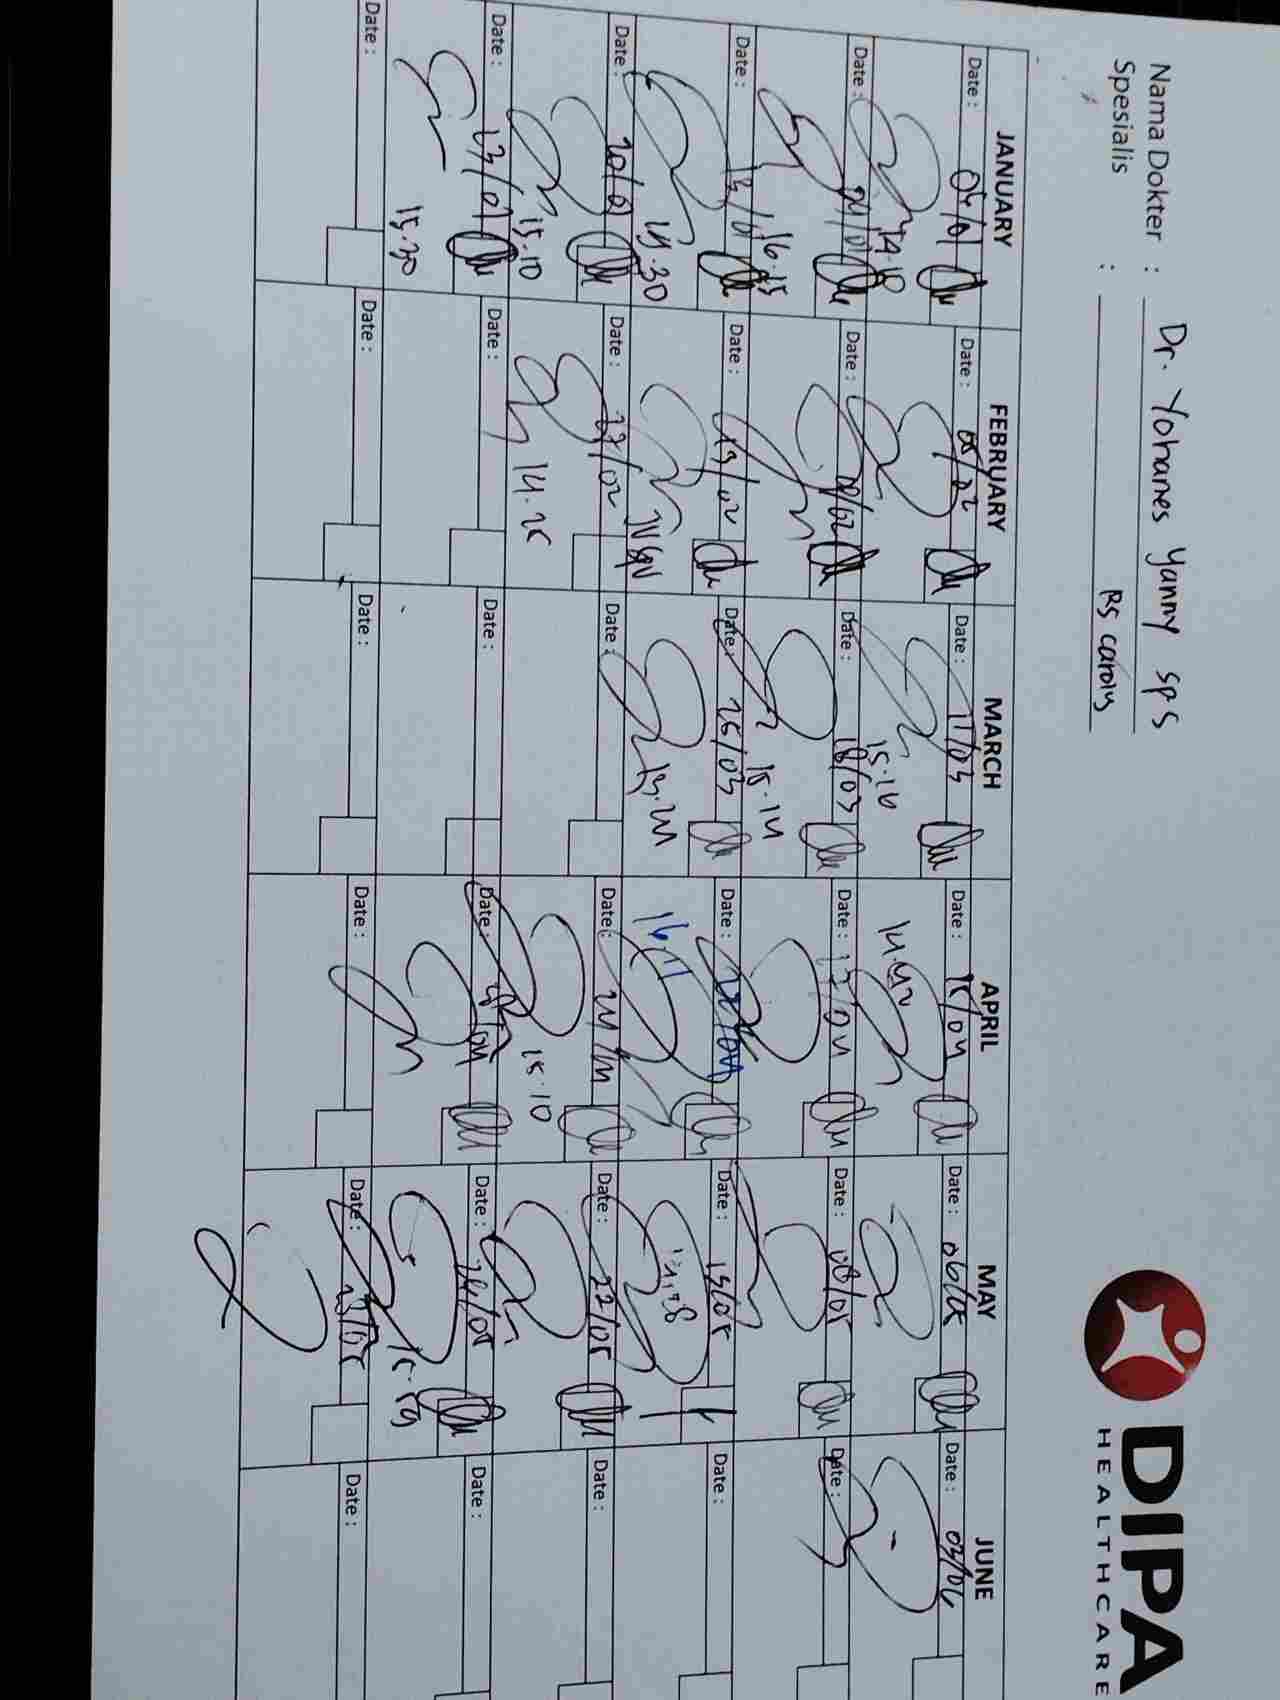 DIPA
HEALTHCARE
Nama Dokter : Dr. Yohanes Yanny SpS
Spesialis : RS Carolus
JANUARY FEBRUARY MARCH APRIL MAY JUNE
Date : 04/01 Date : Date : 11/03 Date : Date : 06/05 Date : 03/06
14.10 15.16 14.42
Date : 09/01 Date : 08/02 Date : 18/03 Date : 17/04 Date : 08/05 Date :
16.15 15.14
Date : 13/01 Date : 13/02 Date : 25/03 Date : Date : 15/05 Date :
14.30 13.24 16.17 14.28
Date : 20/01 Date : 27/02 Date : Date : 24/04 Date : 22/05 Date :
15.10 14.25 15.10
Date : 23/01 Date : Date : Date : Date : Date :
15.30 15.59
Date : Date : Date : Date : Date : Date :